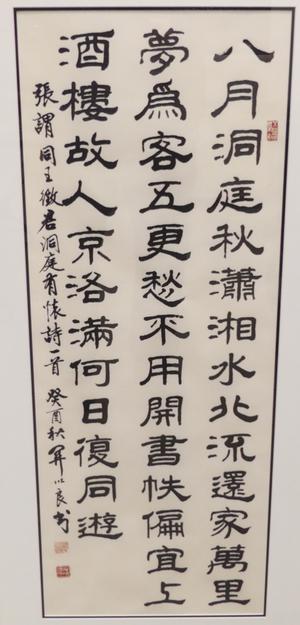 八月洞庭秋瀟湘水北流還家萬里
夢爲客五更愁不用開書帙偏宜上
酒樓故人京洛滿何日復同遊
張謂同王徵君洞庭有懷詩一首 癸酉秋 以良書